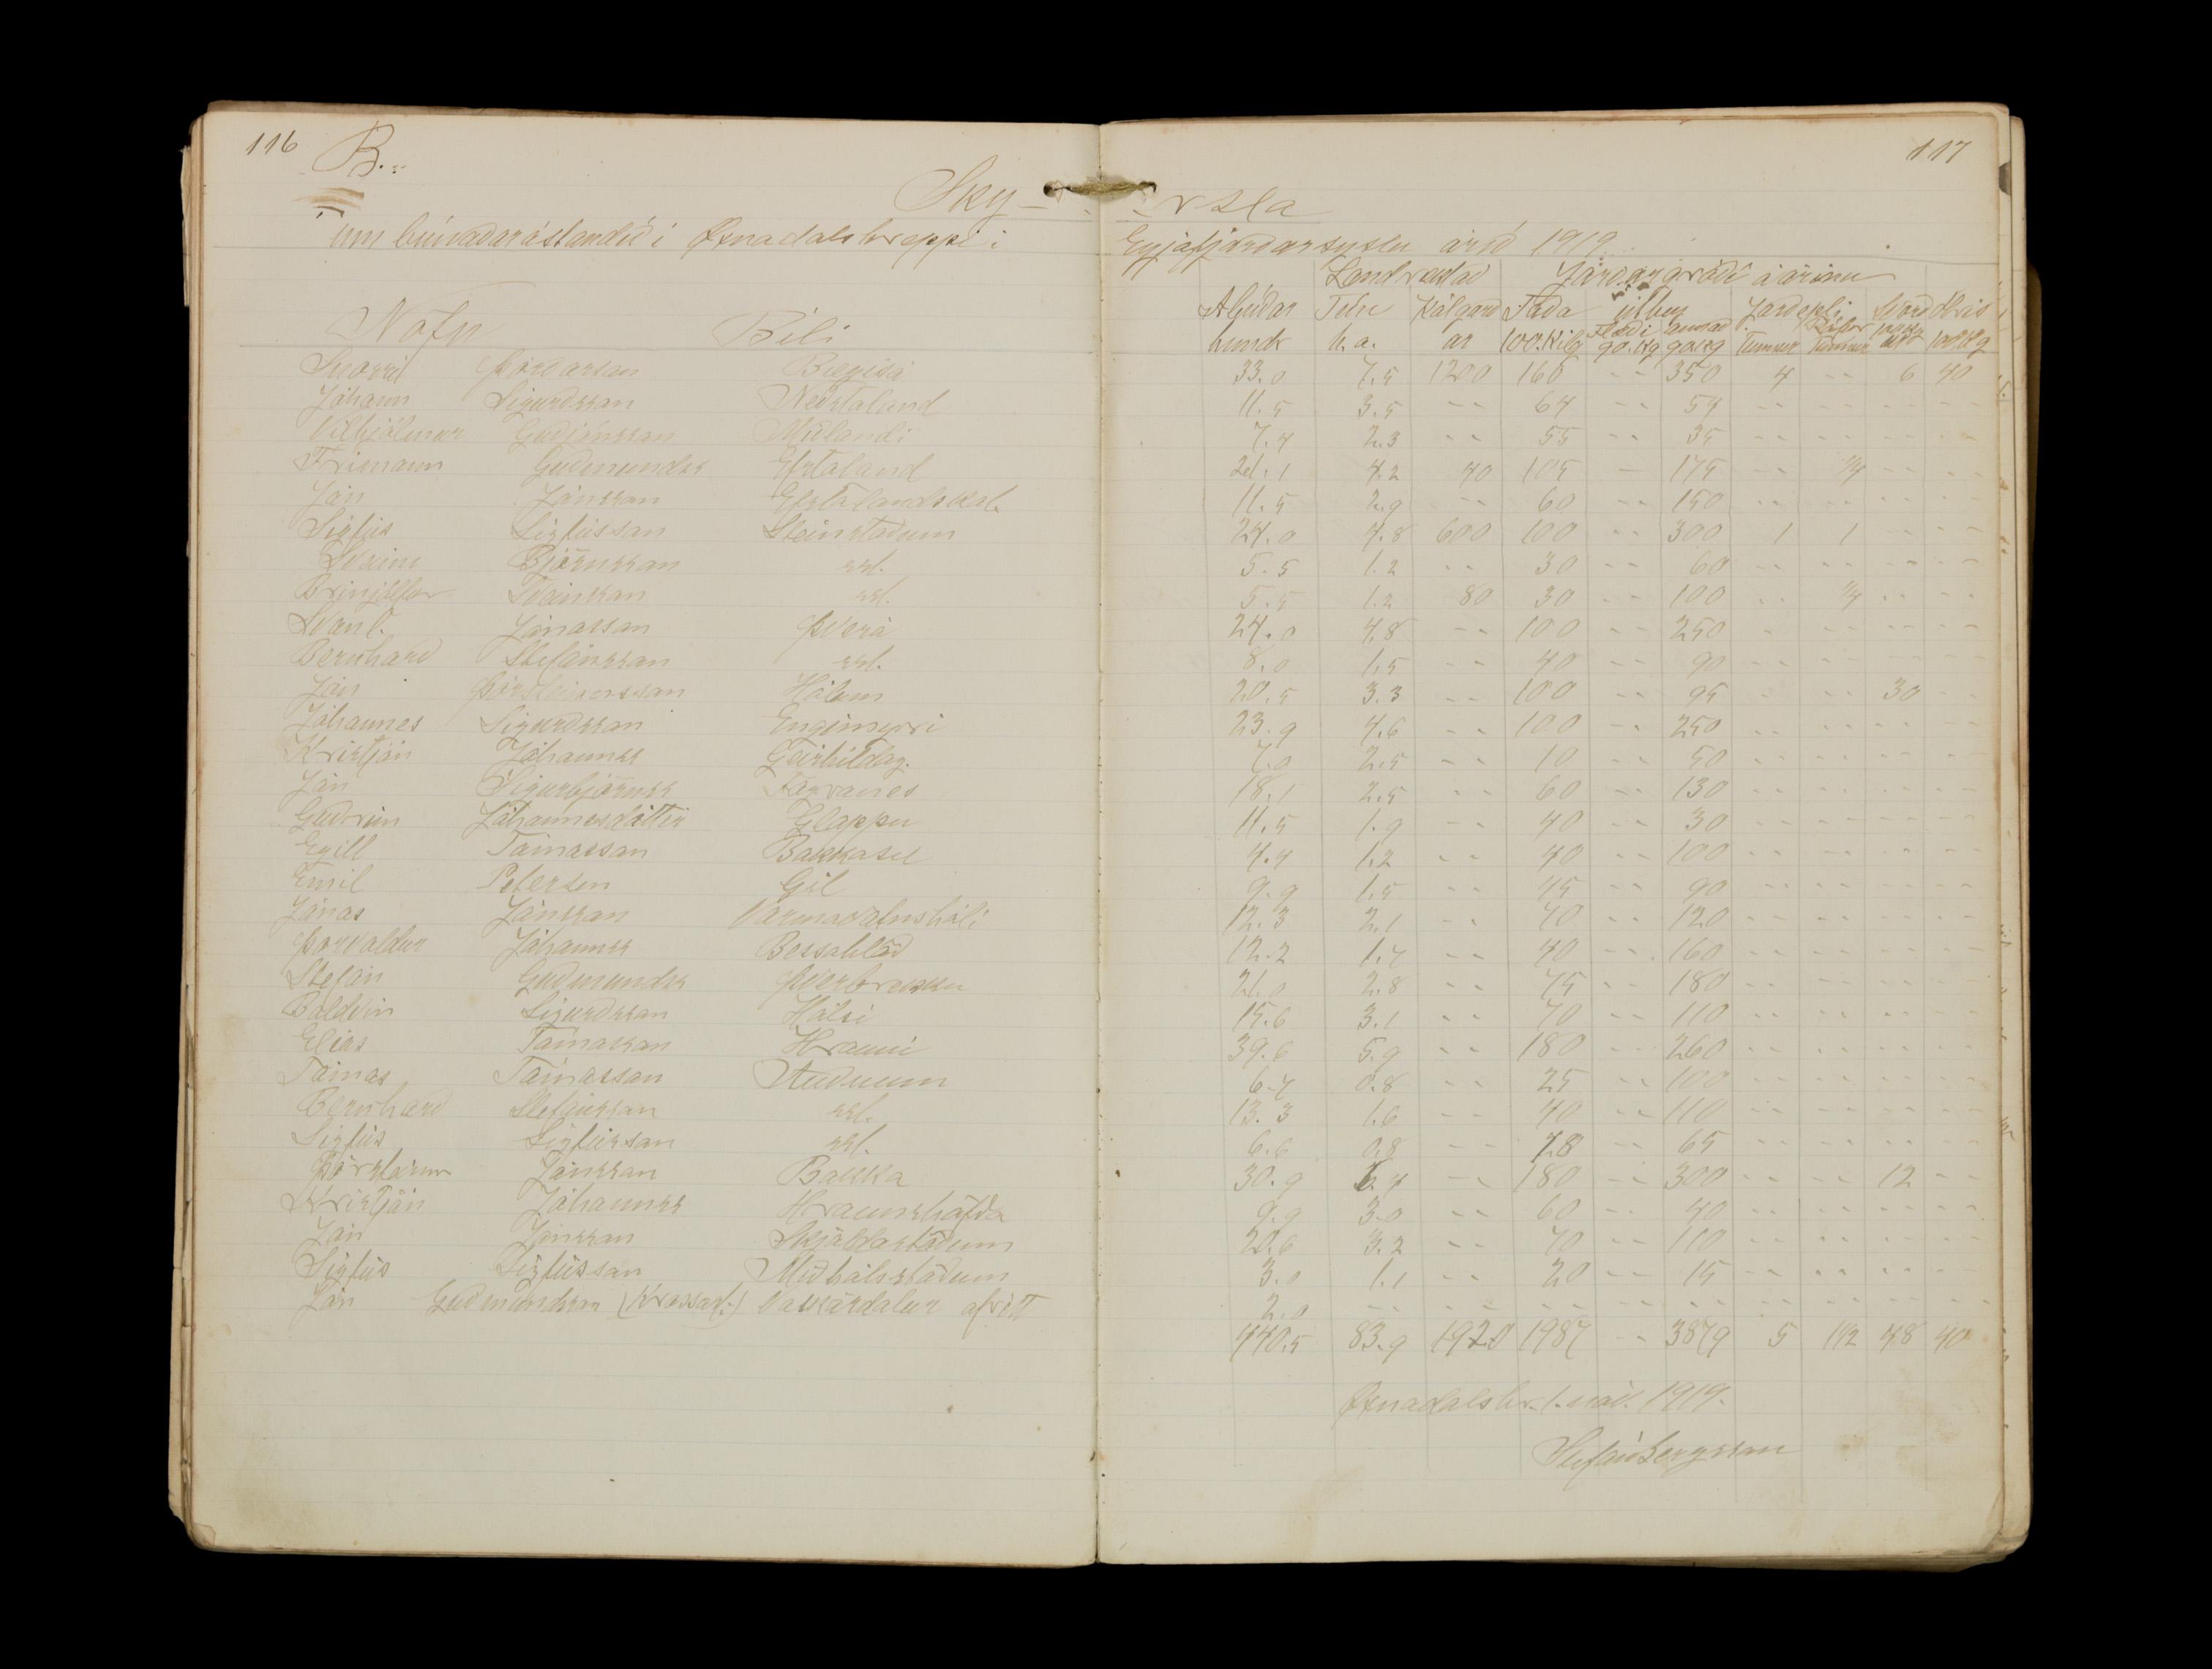 116 B. 117
Sky - - rsla
um búnadarástandið i Øxnadalshreppi i Eyjafjardarsyslu árið 1919
Land ræktað Jardargródi á árinu
Nöfn Bili Ábúdar Tún Kálgard Taða úthey Jardepli Rófur Svörd Hris
hundr h.a. ar 100.Kilg Flædi 90.kg annad 90kg Tunnur Tunnur 100kg 100kg
Snorri Þórdarson Bægisá 33.0 7.5 1200 165 -- 350 4 -- 6 40
Jóhann Sigurdsson Neðstaland 11.5 3.5 -- 64 -- 54 -- -- -- --
Vilhjálmur Gudjónsson Midlandi 7.4 2.3 -- 55 -- 35 -- -- -- --
Frimann Gudmundss Efstaland 21.1 4.2 40 105 - 175 -- 1/4 -- --
Jón Jónsson Efstalandskot. 11.5 2.9 -- 60 -- 150 -- -- -- --
Sigfús Sigfússon Steinstadum 24.0 4.8 600 100 -- 300 1 1 -- --
Sveinn Björnsson ssl. 5.5 1.2 -- 30 -- 60 -- -- -- --
Brinjólfur Sveinsson ssl. 5.5 1.2 80 30 -- 100 -- 1/4 -- --
Svanl. Jónasson Þverá 24.0 4.8 -- 100 -- 250 - -- -- --
Bernhard Stefánsson ssl. 8.0 1.5 -- 40 -- 90 -- -- -- --
Jón Þorsteinsson Hólum 20.5 3.3 -- 100 -- 95 - -- 30 --
Jóhannes Sigurdsson Engimyri 23.9 4.6 -- 100 -- 250 -- -- -- --
Kristján Jóhannss Geirhildag. 7.0 2.5 -- 10 -- 50 -- -- -- --
Jón Sigurbjörnss Fagranes 18.1 2.5 -- 60 -- 130 -- -- -- --
Gudrún Jóhannesdóttir Gloppu 11.5 1.9 -- 40 -- 30 -- -- -- --
Egill Tómasson Bakkasel 4.4 1.2 -- 40 -- 100 -- -- -- --
Emil Petersen Gil 9.9 1.5 -- 45 -- 90 -- -- -- --
Jónas Jónsson Varmavatnshóli 12.3 2.1 -- 40 -- 120 -- -- -- --
Þorvaldur Jóhannss Bessahlöð 12.2 1.7 -- 40 -- 160 -- -- -- --
Stefán Gudmundss Þverbrekku 21.0 2.8 -- 75 -- 180 -- -- -- --
Baldvin Sigurdsson Hálsi 15.6 3.1 -- 70 -- 110 -- -- -- --
Elias Tómasson Hrauni 39.6 5.9 -- 180 -- 260 -- -- -- --
Tómas Tómasson Audnum 6.7 0.8 -- 25 -- 100 -- -- -- --
Bernhard Stefánsson ssl. 13.3 1.6 -- 40 -- 110 -- -- -- --
Sigfús Sigfússon ssl. 6.6 0.8 -- 28 -- 65 -- -- -- --
Þórsteinn Jónsson Bakka 30.9 6.4 -- 180 -- 300 -- -- 12 --
Kristján Jóhannss Hraunshöfda 9.9 3.0 -- 60 -- 40 -- -- -- --
Jón Jónsson Skjaldastödum 20.6 3.2 -- 70 -- 110 -- -- -- --
Sigfús Sigfússon Midhálsstödum 3.0 1.1 -- 20 -- 15 -- -- -- --
Jón Gudmundsson Vaskárdalur afrétt 2.0 -- -- -- -- -- -- -- -- --
440.5 83.9 1920 1987 -- 3879 5 1 1/2 48 40
Øxnadalshr. 1. mai. 1919.
Stefán Bergsson